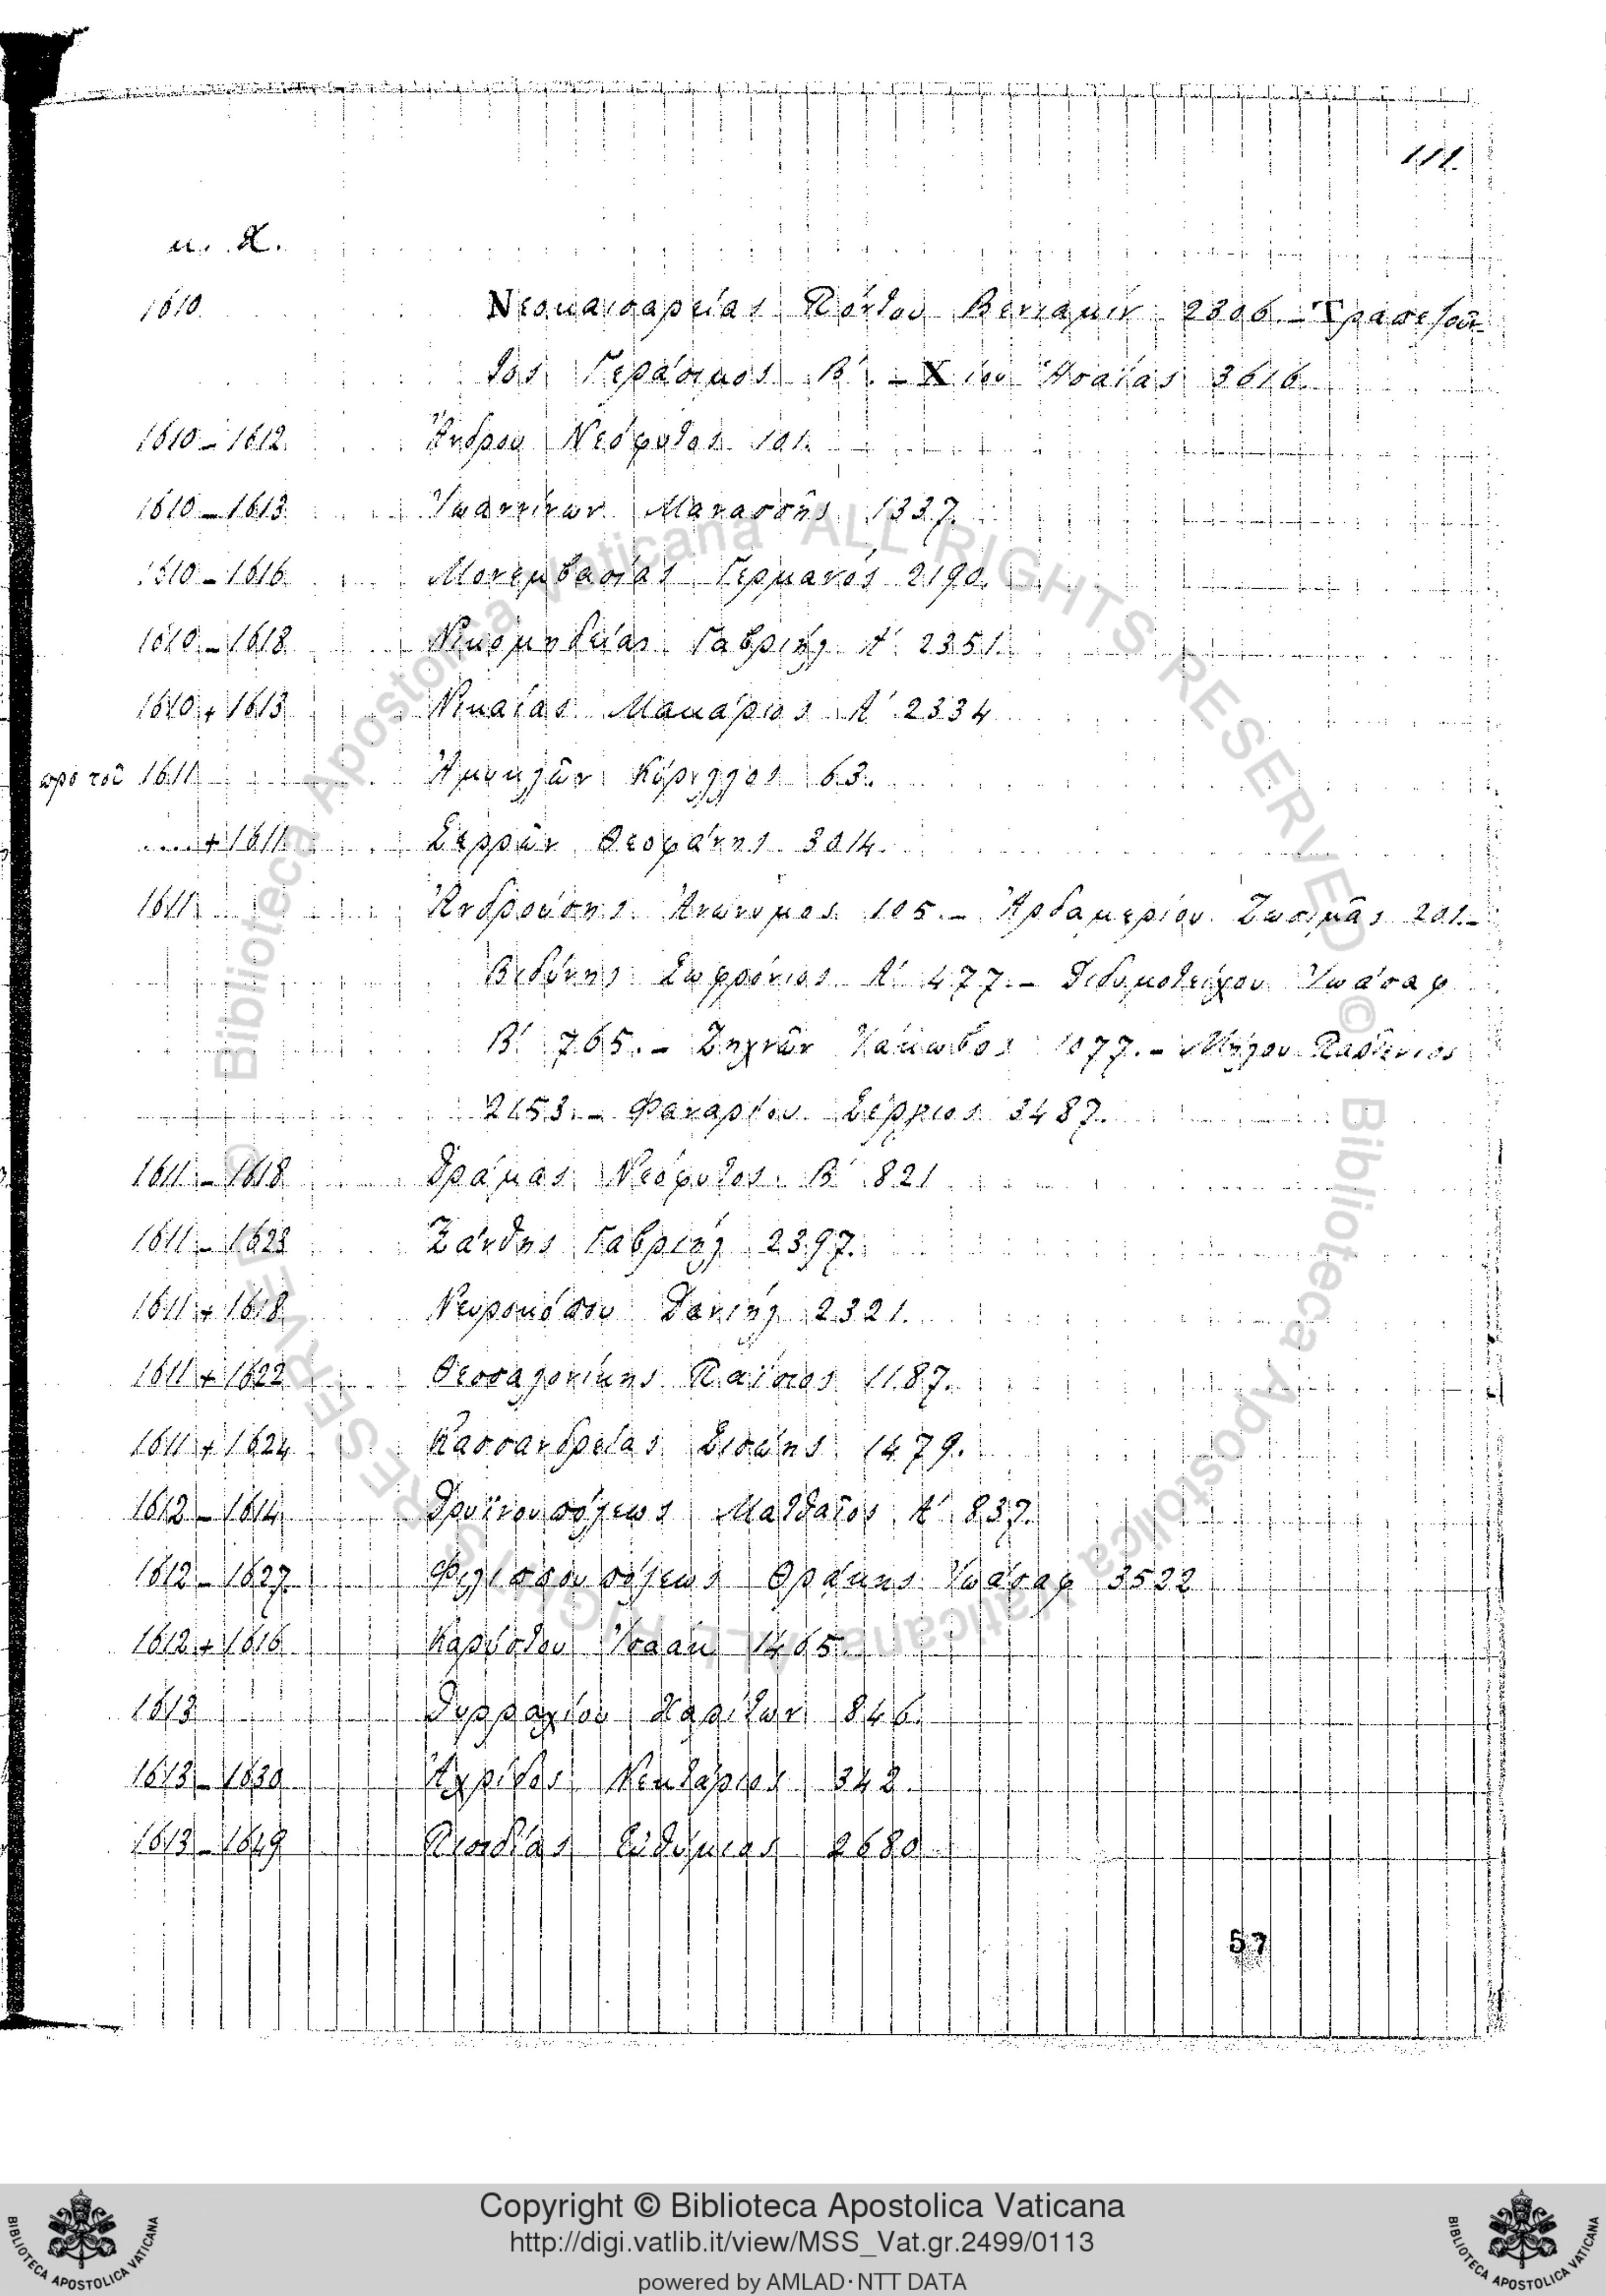 111.
μ. Χ.
1610 Νεοκαισαρείας Πόντου Βενιαμίν 2306 - Τραπεζοῦν-
τος Γεράσιμος Β΄. - Χίου Ἡσαΐας 3616.
1610 - 1612 Ἄνδρου Νεόφυτος 101.
1610 - 1613 Ἰωαννίνων Μανασσῆς 1337.
1610 - 1616 Μονεμβασίας Γερμανός 2190.
1610 - 1618 Νικομηδείας Γαβριήλ Α΄ 2351.
1610 + 1613 Νικαίας Μακάριος Α΄ 2334
πρὸ τοῦ 1611 Ἀμυκλῶν Κύριλλος 63.
....+ 1611 Σερρῶν Θεοφάνης 3014.
1611 Ἀνδρούσης Ἀνώνυμος 105. - Ἀρδαμερίου Ζωσιμᾶς 201. -
Βιδύνης Σωφρόνιος Α΄ 477. - Διδυμοτείχου Ἰωάσαφ
Β΄ 765. - Ζηχνῶν Ἰάκωβος 1077. - Μήλου Παρθένιος
2153. - Φαναρίου Σέργιος 3487.
1611 - 1618 Δράμας Νεόφυτος Β΄ 821
1611 - 1623 Ξάνθης Γαβριήλ 2397.
1611 + 1618 Νευροκόπου Δανιήλ 2321.
1611 + 1622 Θεσσαλονίκης Παΐσιος 1187.
1611 + 1624 Κασσανδρείας Σισώης 1479.
1612 - 1614 Δρυϊνουπόλεως Ματθαῖος Α΄ 837.
1612 - 1627 Φιλιππουπόλεως Θράκης Ἰωάσαφ 3522
1612 + 1616 Καρύστου Ἰσαάκ 1465.
1613 Δυρραχίου Χαρίτων 846.
1613 - 1630 Ἀχρίδος Νεκτάριος 342.
1613 - 1649 Πισιδίας Εὐθύμιος 2680
57
© Biblioteca Apostolica Vaticana ALL RIGHTS RESERVED
© Biblioteca Apostolica Vaticana ALL RIGHTS RESERVED
Copyright © Biblioteca Apostolica Vaticana
http://digi.vatlib.it/view/MSS_Vat.gr.2499/0113
powered by AMLAD·NTT DATA
BIBLIOTECA APOSTOLICA VATICANA
BIBLIOTECA APOSTOLICA VATICANA